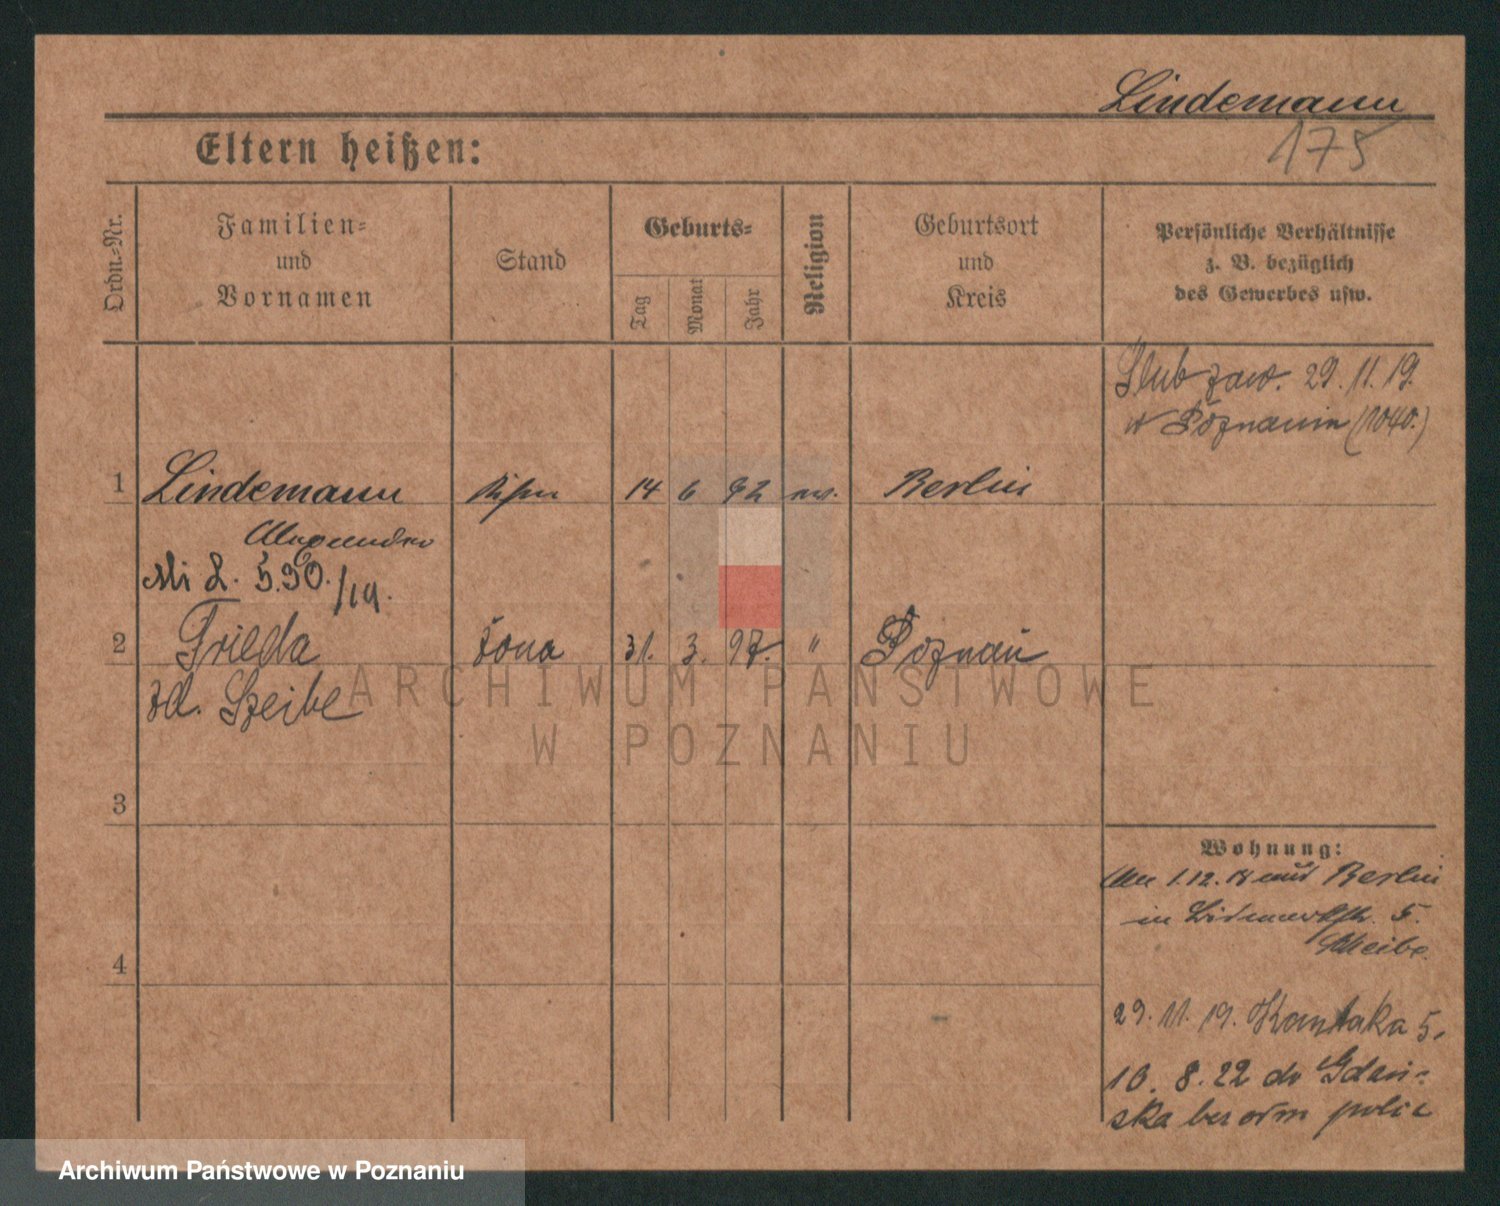 Lindemann
175
Eltern heißen:
Ordn.=Nr.
Familien=
und
Vornamen
Stand
Geburts=
Tag
Monat
Jahr
Religion
Geburtsort
und
Kreis
Persönliche Verhältnisse
z. B. bezüglich
des Gewerbes usw.
Ślub zaw. 29. 11. 19.
w Poznaniu (1040.)
1 Lindemann 14 6 92 ew. Berlin
Alexander
Mi L. 5.90./19.
2 Frieda żona 31. 3. 97. " Poznań
zd. Szeibe
3
4
Wohnung:
Am 1.12.18 aus Berlin
in Bismarckstr. 5.
Scheibe.
29. 11. 19. Kantaka 5.
10. 8. 22 do Gdań=
ska bez policz
ARCHIWUM PAŃSTWOWE
W POZNANIU
Archiwum Państwowe w Poznaniu